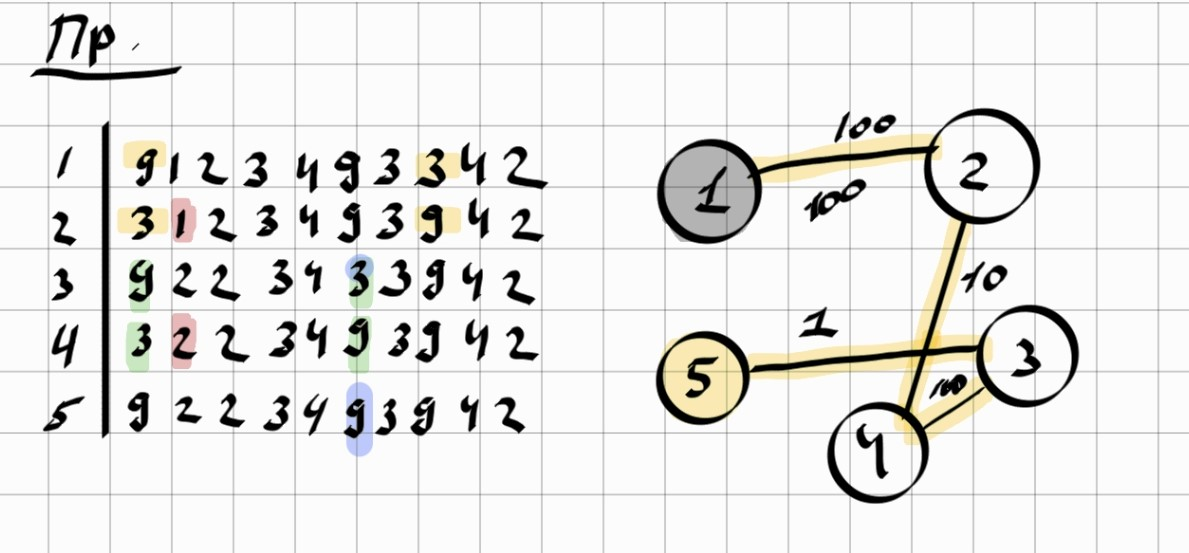 Пр.
1 9 1 2 3 4 9 3 3 4 2
2 3 1 2 3 4 9 3 9 4 2
3 9 2 2 3 4 3 3 9 4 2
4 3 2 2 3 4 9 3 9 4 2
5 9 2 2 3 4 9 3 9 4 2
100
1
2
100
10
1
5
3
100
4